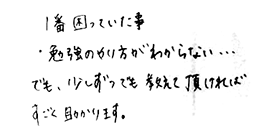 1番困っていた事
・勉強のやり方がわからない…
でも、少しずつでも教えて頂ければ
すごく助かります。